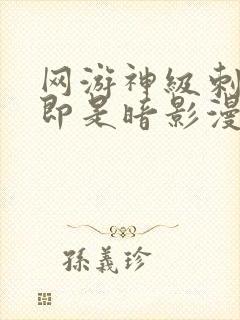 网游神级刺
即是暗影漫
孫義珍